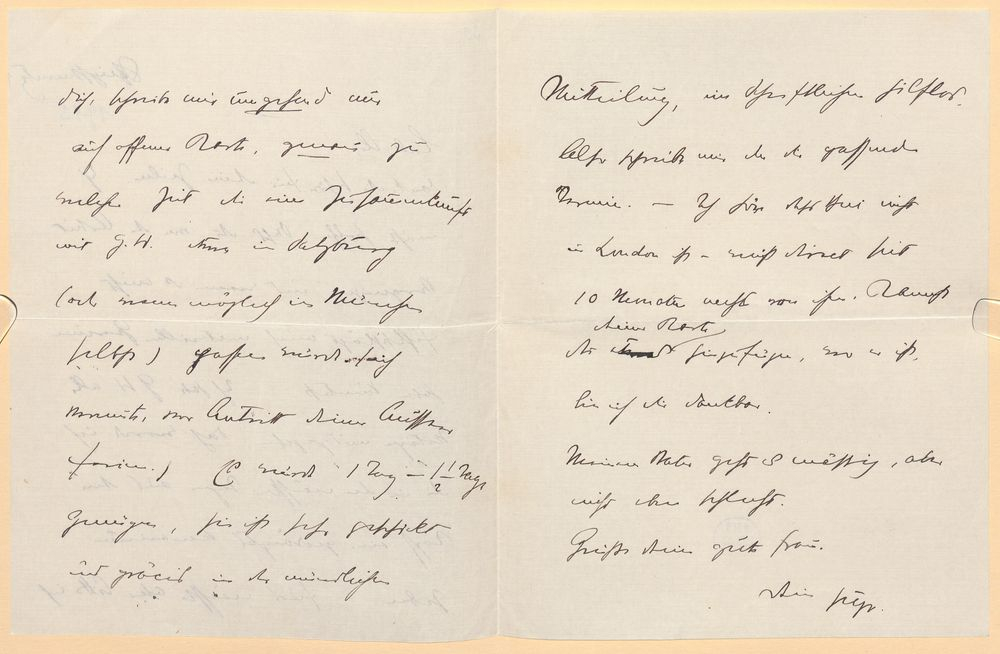 dich, schreib mir umgehend nur
auf offener Karte, genau zu
welcher Zeit dir eine Zusammenkunft
mit G.H. etwa in Salzburg
(od. wenn möglich in München
selbst) passen würde (noch
vor Antritt deiner
Ferien.) Es würde 1 Tag – 1 1/2 Tage
genügen, sie ist sehr geschickt
und präcis in der mündlichen
Mitteilung, im schriftlichen hilflos.
Also schreib mir die dir passenden
Termine. – Ich höre dass nicht
in London ist – weiss derzeit seit
10 Monaten nichts von ihm. Kannst
deine Karte
du hinzufügen, wo er ist,
bin ich dir dankbar.
Meinem Vater geht es mässig, aber
nicht eben schlecht.
Grüße deine gute Frau.
Dein Hugo.